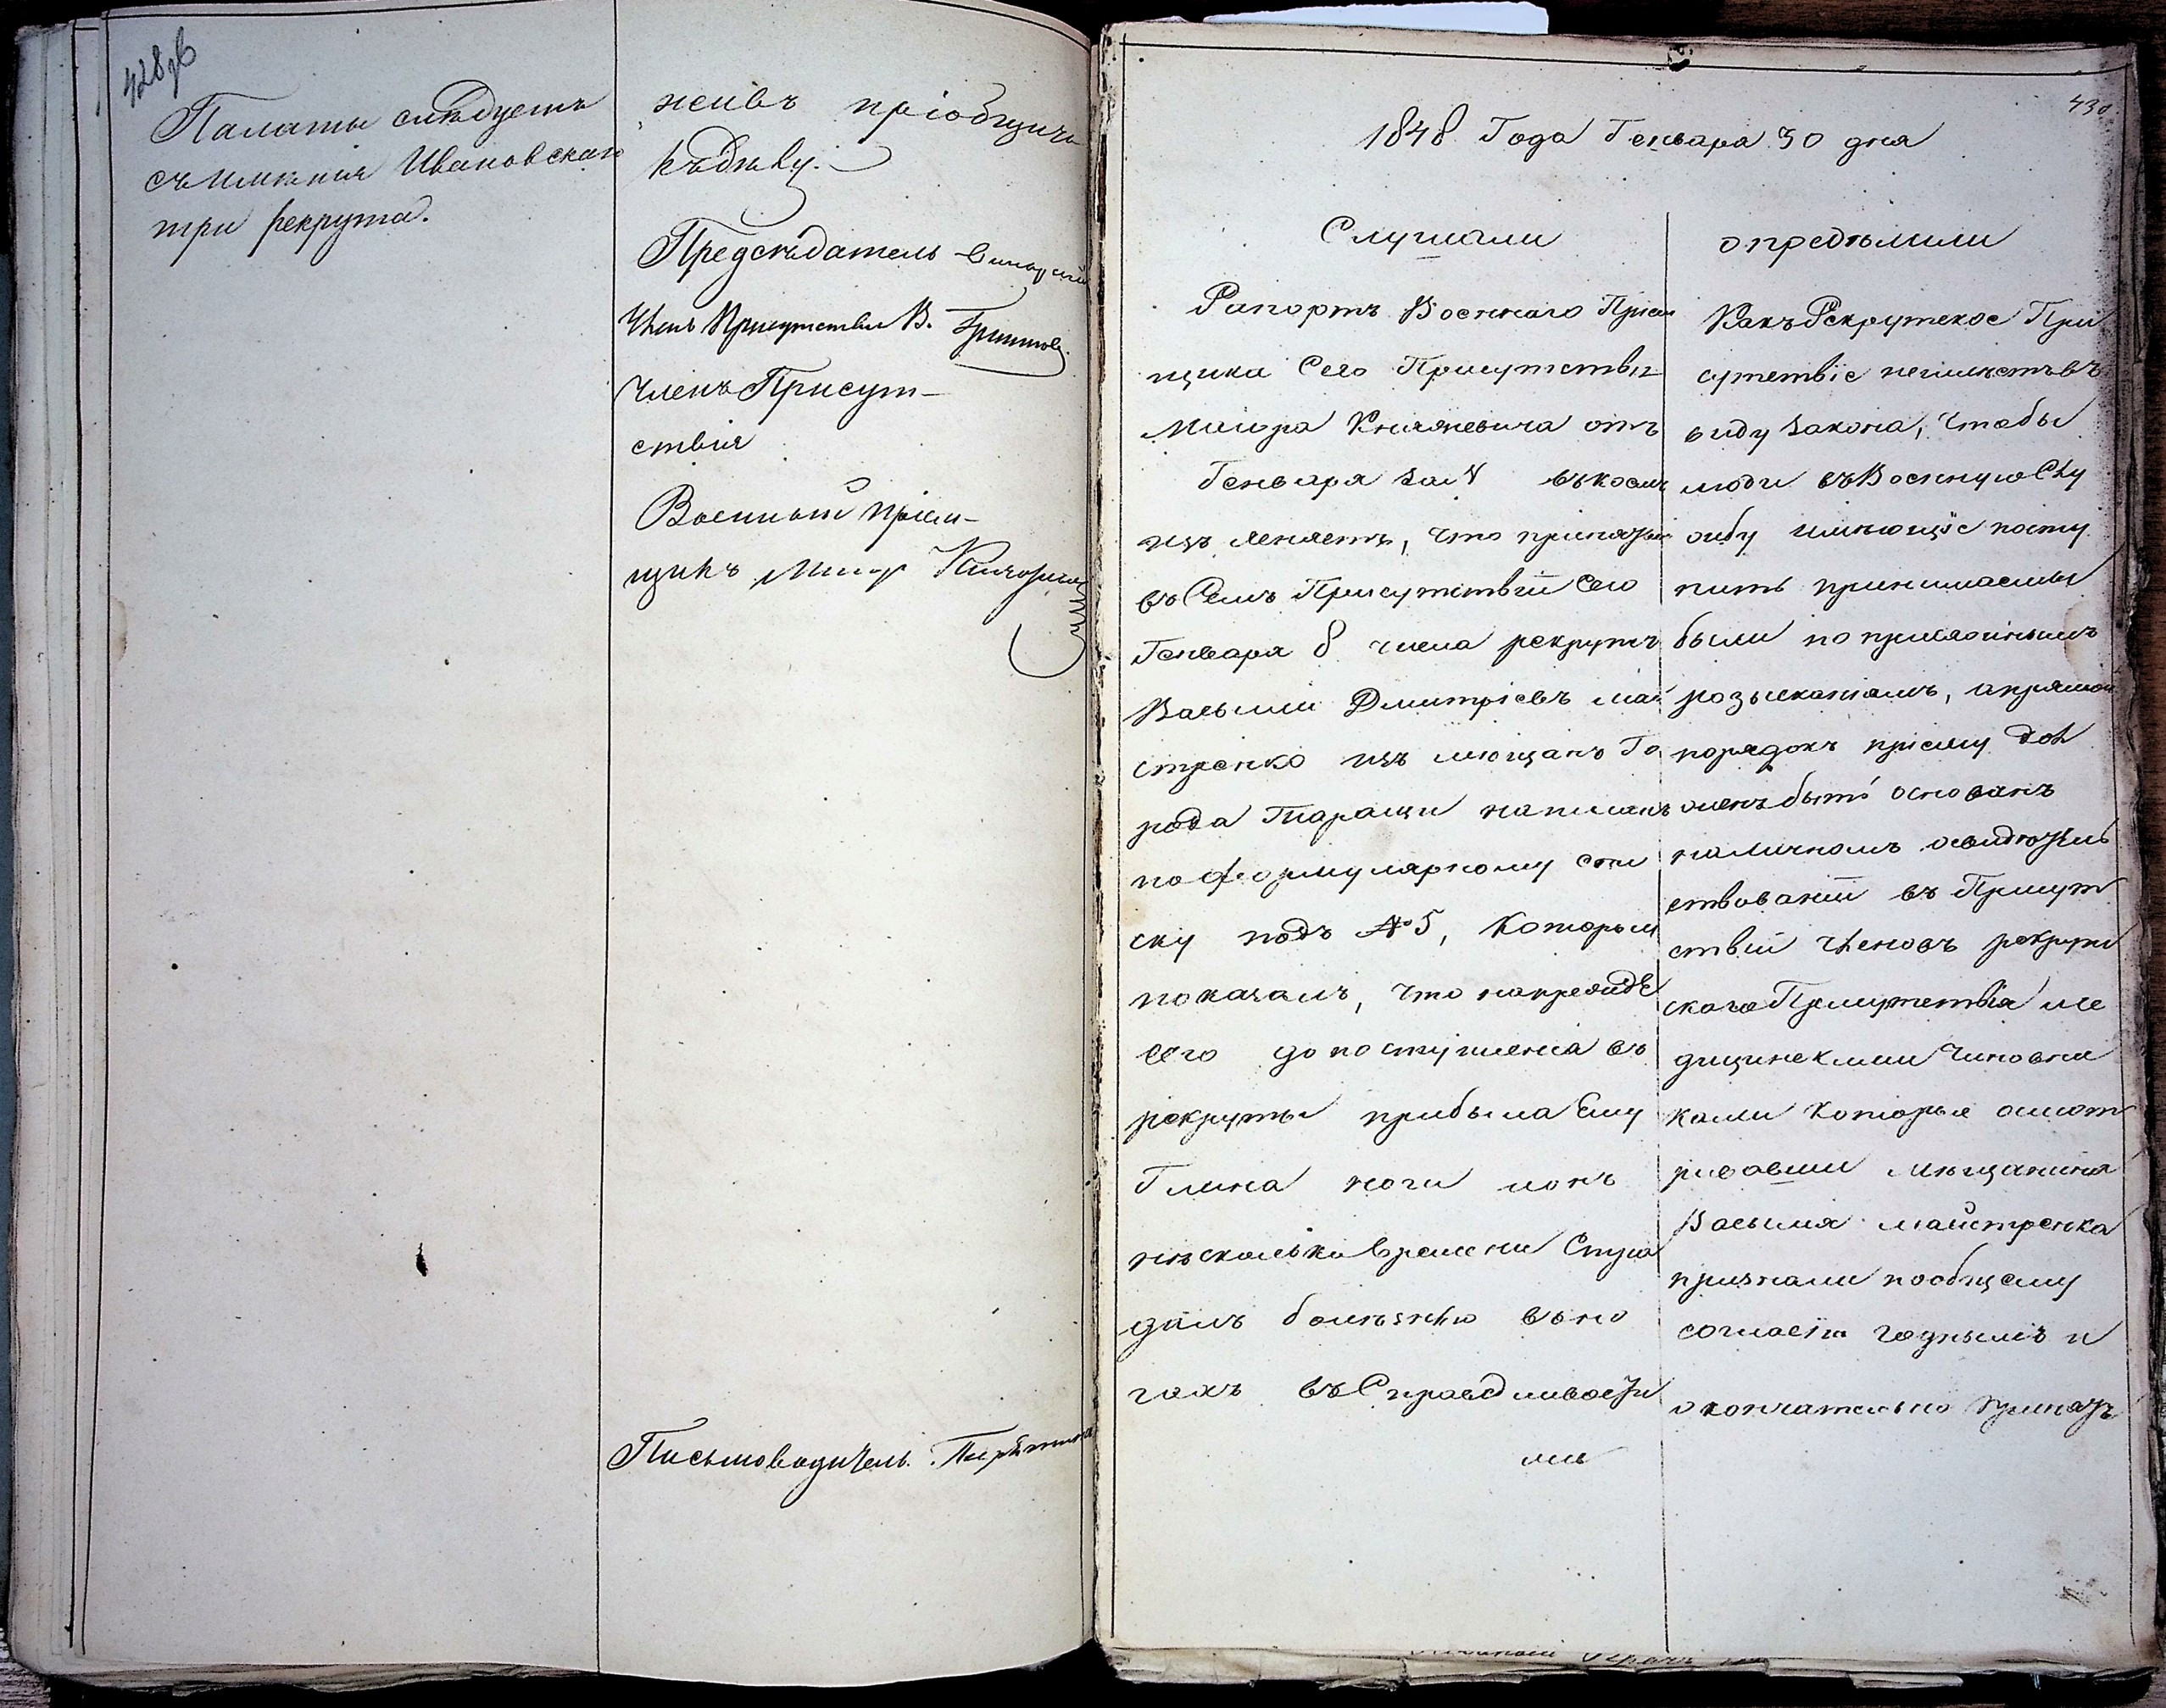 Палаты слѣдуетъ
съ имѣнія Ивановскаго
три рекрута.
женвъ пріобщить
къ дѣлу.
Предсѣдатель
Членъ Присутствія В.
Членъ Присут-
ствія
Военный пріем-
щикъ Маіор
Письмоводитель
430
1848 Года Генваря 30 дня
Слушали
Рапортъ Военнаго Пріем
щика Сего Присутствія
Маіора Княжевича отъ
Генваря за № въ коемъ
изъясняетъ, что принятый
въ Семъ Присутствіи Сего
Генваря 8 числа рекрутъ
Василій Дмитріевъ Май
стренко изъ мѣщанъ Го
рода Таращи написанъ
по формулярному спи
ску подъ № 5, который
показалъ, что напредъ
сего до поступленія въ
рекруты прибыла Ему
Глина ноги и онъ
нѣсколько времени Стра
далъ болѣзнію въ но
гахъ въ Справедливости
опредѣлили
Какъ Рекрутское При
сутствіе не имѣетъ въ
виду закона, чтобы
люди въ Военную Слу
жбу имѣющіе посту
пить принимаемы
были по
розысканіямъ, а прямой
порядокъ пріему дол
женъ быть основанъ
на личномъ освидѣтель
ствованіи въ Присут
ствіи членовъ рекрут
скаго Присутствія ме
дицинскими Чиновни
ками которые осмот
рѣвши мѣщанина
Василія Майстренка
признали по общему
согласію годнымъ и
окончательно принятъ